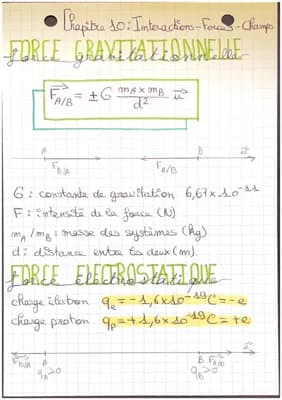 Chapitre 10: Interactions-Forces-Champs
FORCE GRAVITATIONNELLE
force gravitationnelle
F⃗A/B = ± G mA × mB / d² u⃗
A B u⃗
FB/A FA/B
G : constante de gravitation 6,67×10⁻¹¹
F : intensité de la force (N)
mA / mB : masse des systèmes (kg)
d : distance entre les deux (m).
FORCE ELECTROSTATIQUE
force électrostatique
charge électron qe = -1,6×10⁻¹⁹C = -e
charge proton qp = +1,6×10⁻¹⁹C = +e
FB/A A B FA/B u⃗
qA>0 qB>0